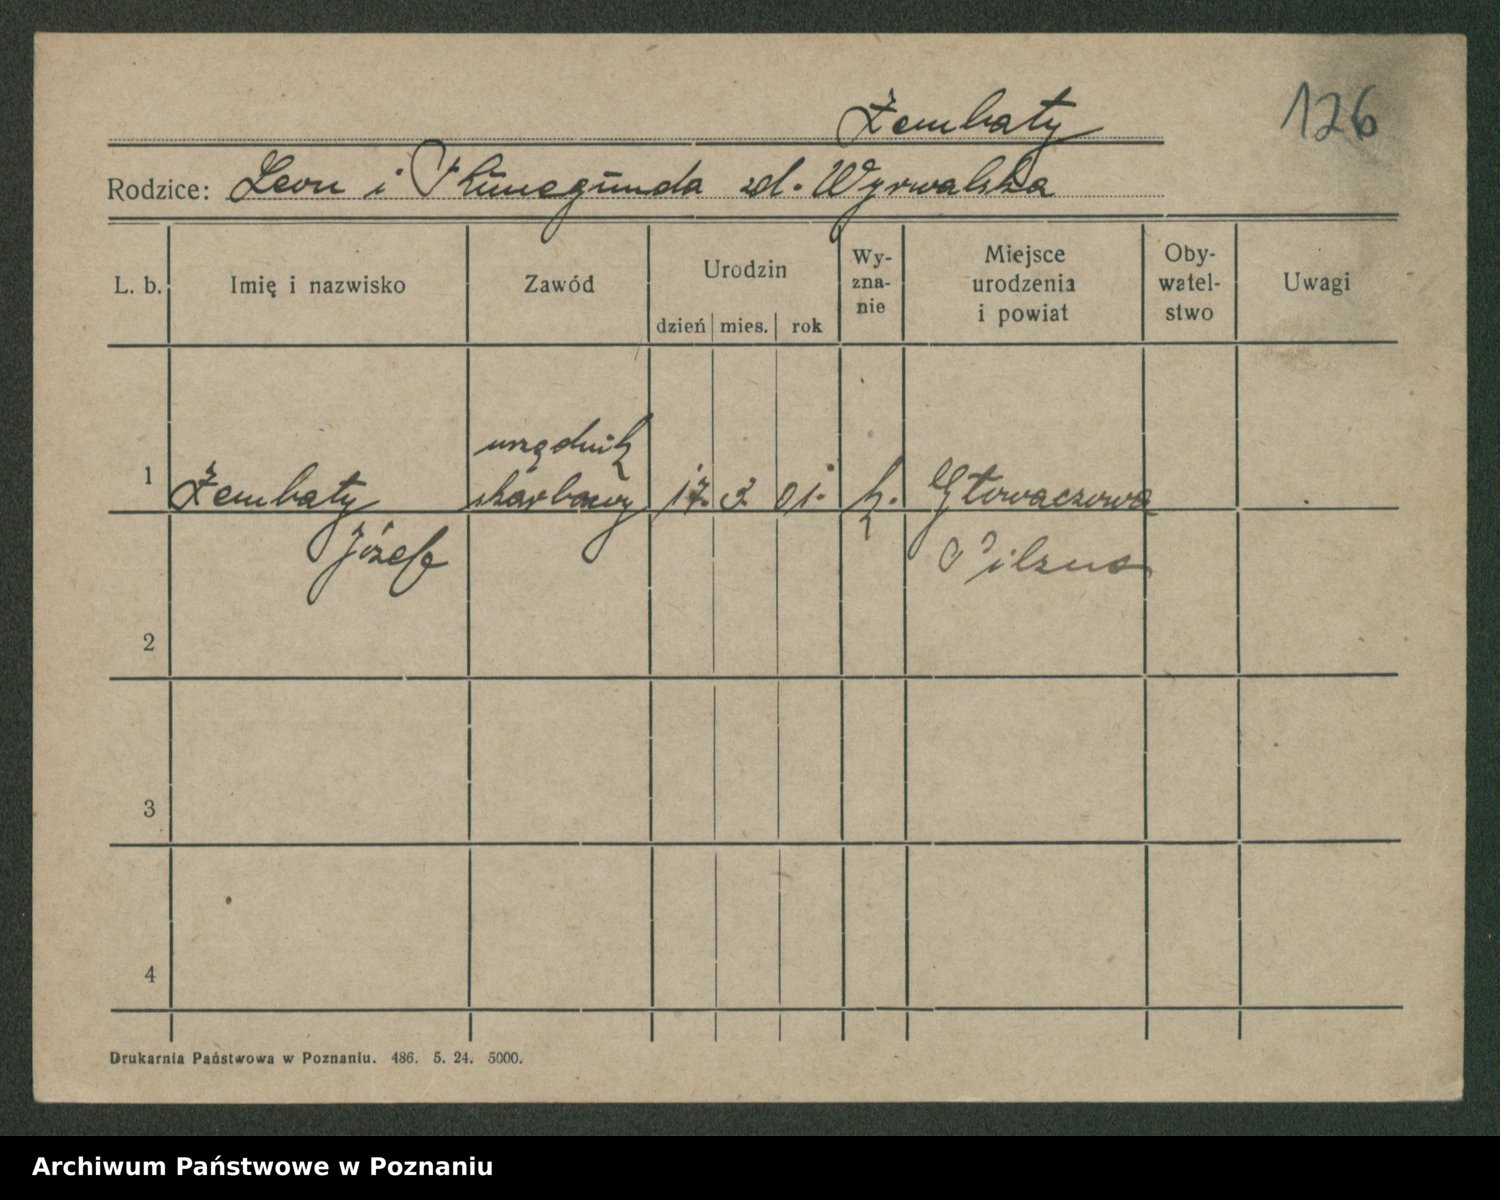 126
Żembaty
Rodzice: Leon i Kunegunda zd. Wyrwalska
L. b. Imię i nazwisko Zawód Urodzin dzień mies. rok Wy-zna-nie Miejsce urodzenia i powiat Oby-watel-stwo Uwagi
urzędnik
1 Żembaty skarbowy 17. 3. 01. k. Głowaczowa
Józef Pilzno
2
3
4
Drukarnia Państwowa w Poznaniu. 486. 5. 24. 5000.
Archiwum Państwowe w Poznaniu